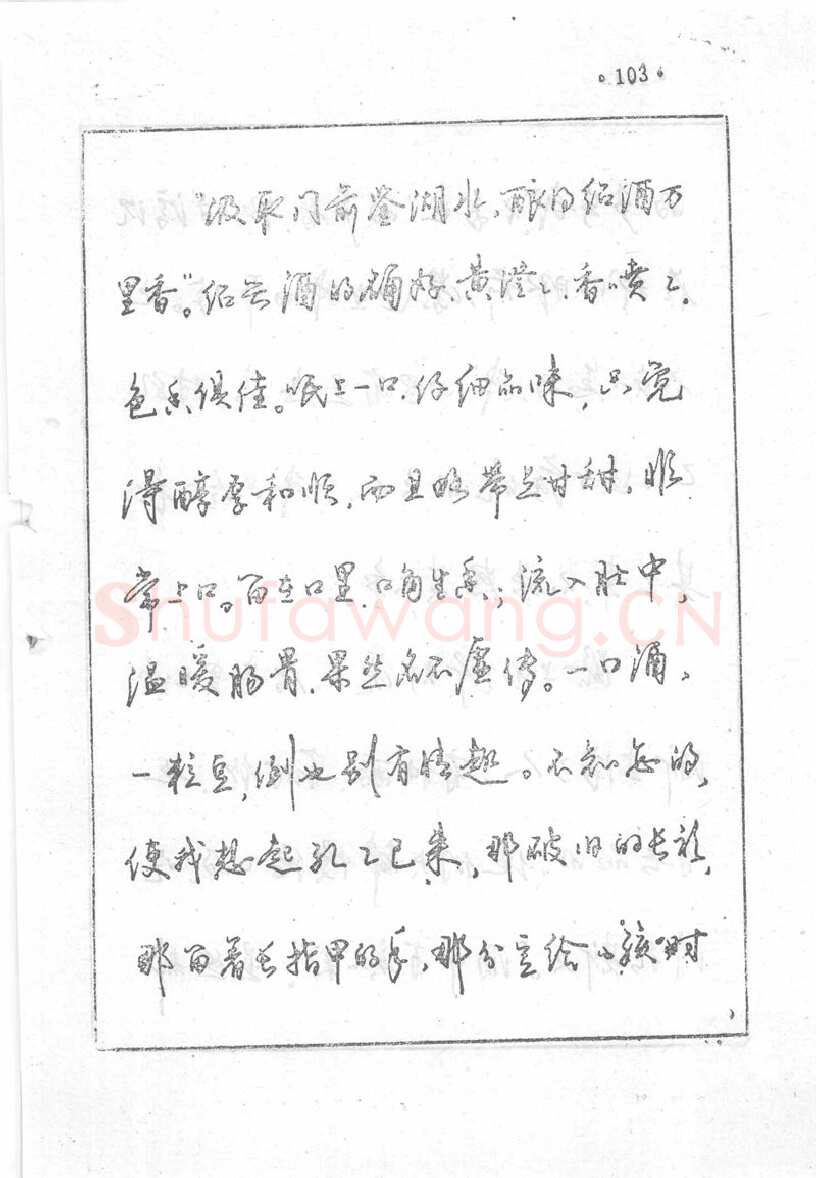 ·103·
“汲取门前鉴湖水，酿得绍酒万
里香”。绍兴酒的确好、黄澄々、香喷々、
色香俱佳。呡上一口、仔细品味，只觉
得醇厚和顺，而且略带点甘甜，非
常上口。留在口里、口角生香；流入肚中，
温暖肠胃、果然名不虚传。一口酒、
一粒豆，倒也别有情趣。不知怎的，
使我想起孔乙已来，那破旧的长衫，
那留着长指甲的手，那分豆给小孩时
Shufawang.CN